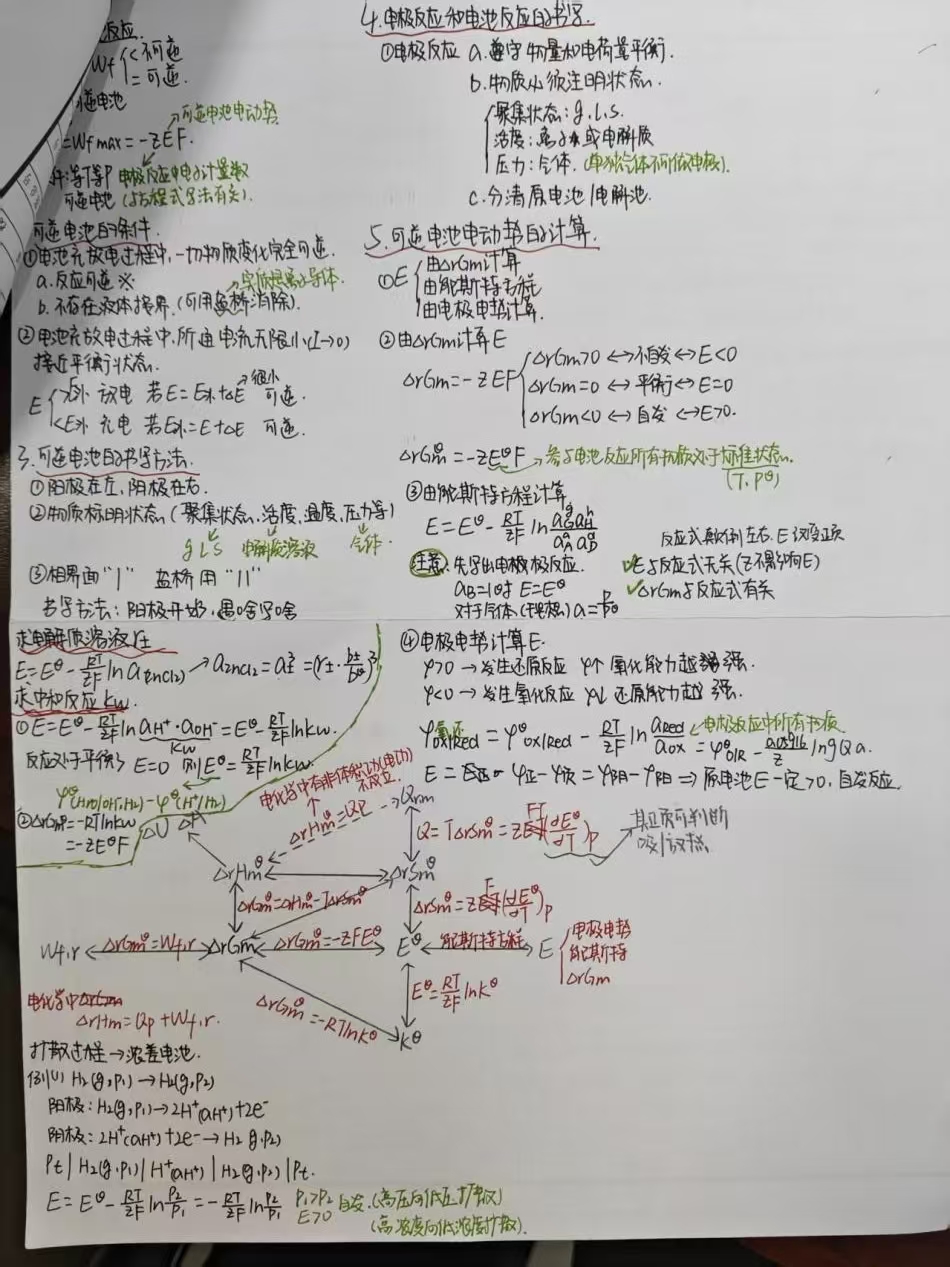 反应.
Wf { < 不可逆
= 可逆.
可逆电池
=Wf max = -zEF. → 可逆电池电动势
等T等P 电极反应中电子计量数
可逆电池 (与方程式写法有关).
可逆电池的条件.
①电池充放电过程中,一切物质变化完全可逆.
a.反应可逆 ※
b.不存在液体接界.(可用盐桥消除). → 实质是离子导体.
②电池充放电过程中,所通电流无限小(I→0)
接近平衡状态.
E { >E外 放电 若E=E外+△E 可逆. → 很小
<E外 充电 若E外=E+△E 可逆.
3.可逆电池的书写方法.
①阳极在左,阴极在右.
②物质标明状态(聚集状态、活度、温度、压力等)
g L S 电解质溶液 气体.
③相界面"|" 盐桥用"||"
书写方法: 阳极开始,遇啥写啥
4.电极反应和电池反应的书写.
①电极反应 a.遵守物量和电荷量平衡.
b.物质必须注明状态.
{ 聚集状态: g.l.s.
活度: 离子或电解质
压力: 气体. (单独气体不可做电极).
c.分清原电池/电解池.
5.可逆电池电动势的计算.
①E { 由△rGm计算
由能斯特方程
由电极电势计算.
②由△rGm计算E
△rGm=-zEF { △rGm>0 ↔ 不自发 ↔ E<0
△rGm=0 ↔ 平衡 ↔ E=0
△rGm<0 ↔ 自发 ↔ E>0.
△rGmᶱ=-zEᶱF → 参与电池反应所有物质处于标准状态.
(T, Pᶱ)
③由能斯特方程计算
E=Eᶱ- RT/zF ln (aG^g aH^h)/(aA^a aB^b)
反应式颠倒左右.E仅变项
注意 先写出电极反应. ✓E与反应式无关(z不影响E)
aB=1时 E=Eᶱ ✓△rGm与反应式有关
对于气体(理想) a= P/Pᶱ
求电解质溶液γ±
E=Eᶱ- RT/zF ln a(ZnCl2) → aZnCl2=a±³=(γ±·b±/bᶱ)³
求中和反应 Kw.
①E=Eᶱ- RT/zF ln aH⁺·aOH⁻=Eᶱ- RT/zF lnKw.
Kw
反应处于平衡 E=0 则Eᶱ= RT/zF lnKw.
φᶱ(H2O/OH⁻,H2)-φᶱ(H⁺/H2)
②△rGmᶱ=-RTlnKw
=-zEᶱF
④电极电势计算E.
φ>0 → 发生还原反应 φ↑ 氧化能力越强.
φ<0 → 发生氧化反应 φ↓ 还原能力越强.
φox/Red = φᶱox/Red - RT/zF ln aRed/aox = φᶱO/R - 0.05916/z lg Qa. ← 电极反应中所有物质
E = φ正-φ负=φ阴-φ阳 ⇒ 原电池E一定>0,自发反应.
电化学中有非体积功(电功)
不成立.
△U △A △rHmᶱ=Qp → Qr,m
Q=T△rSmᶱ=zFT(dEᶱ/dT)p → 其正负可判断
吸/放热.
△rHmᶱ ↔ △rSmᶱ
△rGmᶱ=△rHmᶱ-T△rSmᶱ △rSmᶱ=zF(dEᶱ/dT)p
Wf,r △rGmᶱ=Wf,r △rGm △rGmᶱ=-zFEᶱ Eᶱ 能斯特方程 E { 电极电势
能斯特
△rGm
△rGmᶱ=-RTlnKᶱ Eᶱ= RT/zF lnKᶱ
Kᶱ
电化学中
△rHm=Qp+Wf,r.
扩散过程→浓差电池.
例(1) H2(g,p1)→H2(g,p2)
阳极: H2(g,p1)→2H⁺(aH⁺)+2e⁻
阴极: 2H⁺(aH⁺)+2e⁻→H2(g,p2)
Pt | H2(g,p1) | H⁺(aH⁺) | H2(g,p2) | Pt.
E=Eᶱ- RT/zF ln p2/p1 = - RT/zF ln p2/p1 p1>p2 E>0 自发.(高压向低压扩散)
(高浓度向低浓度扩散).